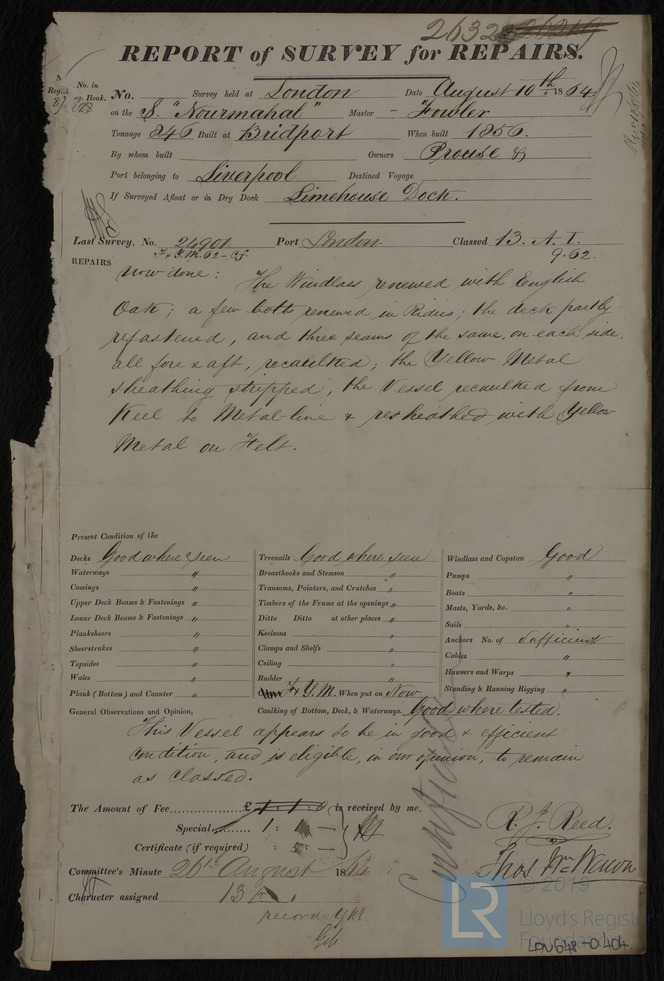 26322
REPORT of SURVEY for REPAIRS.
No. in
Reg. Book.
No. Survey held at London Date August 10th 1864
on the S. "Nourmahal" Master - Fowler
Tonnage 846 Built at Bridport When built 1856.
By whom built Owners Prouse &
Port belonging to Liverpool Destined Voyage
If Surveyed Afloat or in Dry Dock Limehouse Dock.
Last Survey, No. 24901 Port London. Classed 13. A. 1.
F & Y.M. 62 - 9.62.
REPAIRS
now done: The Windlass renewed with English
Oak; a few bolts renewed in Riders; the deck partly
refastened, and three seams of the same, on each side,
all fore & aft, recaulked; the Yellow Metal
sheathing stripped, the Vessel recaulked from
Keel to Metal-line & resheathed with Yellow
Metal on Felt.
Present Condition of the
Decks Good where seen Treenails Good where seen Windlass and Capstan Good
Waterways " Breasthooks and Stemson " Pumps "
Comings " Transoms, Pointers, and Crutches " Boats "
Upper Deck Beams & Fastenings " Timbers of the Frame at the openings " Masts, Yards, &c. "
Lower Deck Beams & Fastenings " Ditto Ditto at other places " Sails "
Planksheers " Keelsons " Anchors No. of Sufficient
Sheerstrakes " Clamps and Shelfs " Cables "
Topsides " Ceiling " Hawsers and Warps "
Wales " Rudder " Standing & Running Rigging "
Plank (Bottom) and Counter " F & Y.M. When put on Now
General Observations and Opinion, Caulking of Bottom, Deck, & Waterways. Good where tested.
This Vessel appears to be in good & efficient
condition, and is eligible, in our opinion, to remain
as classed.
The Amount of Fee £ 1 : 1 : 0 is received by me,
Special 1 : -
Certificate (if required) : 5 : -
R. J. Reed.
Committee's Minute 26th August 1864
Character assigned 13 A 1
record YM
Certificate
© 2019
LR
Lloyd's Register
Foundation
LON648-0404